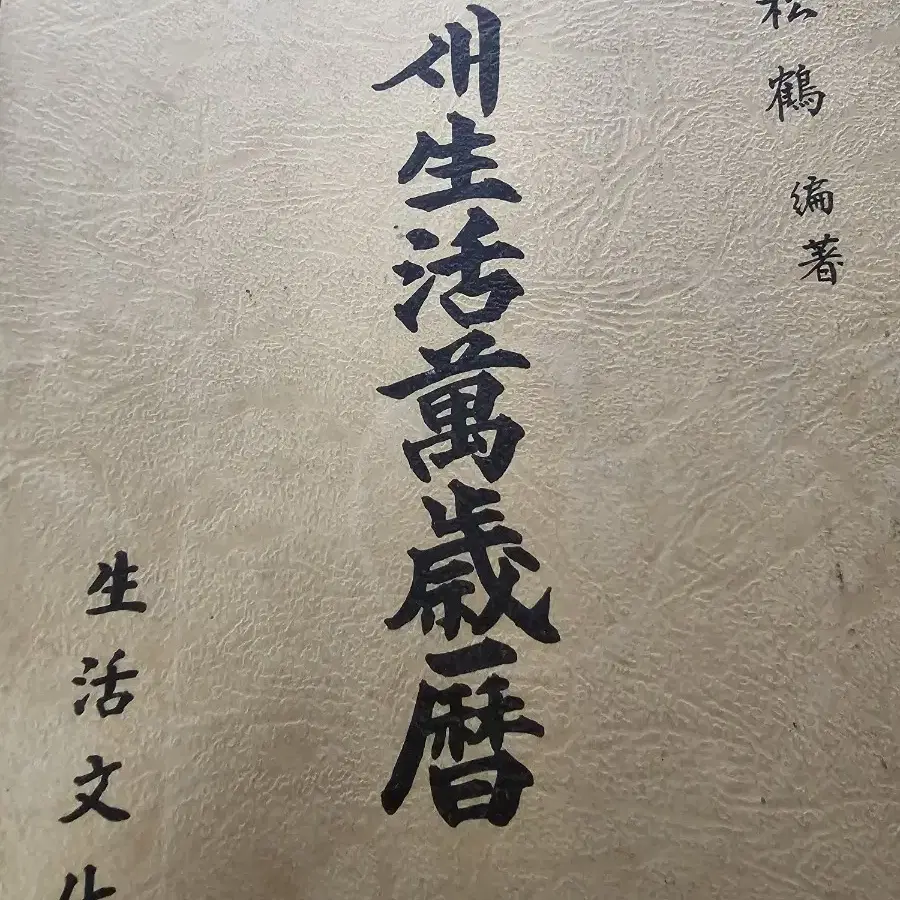 松鶴 編著
새生活萬歲曆
生活文